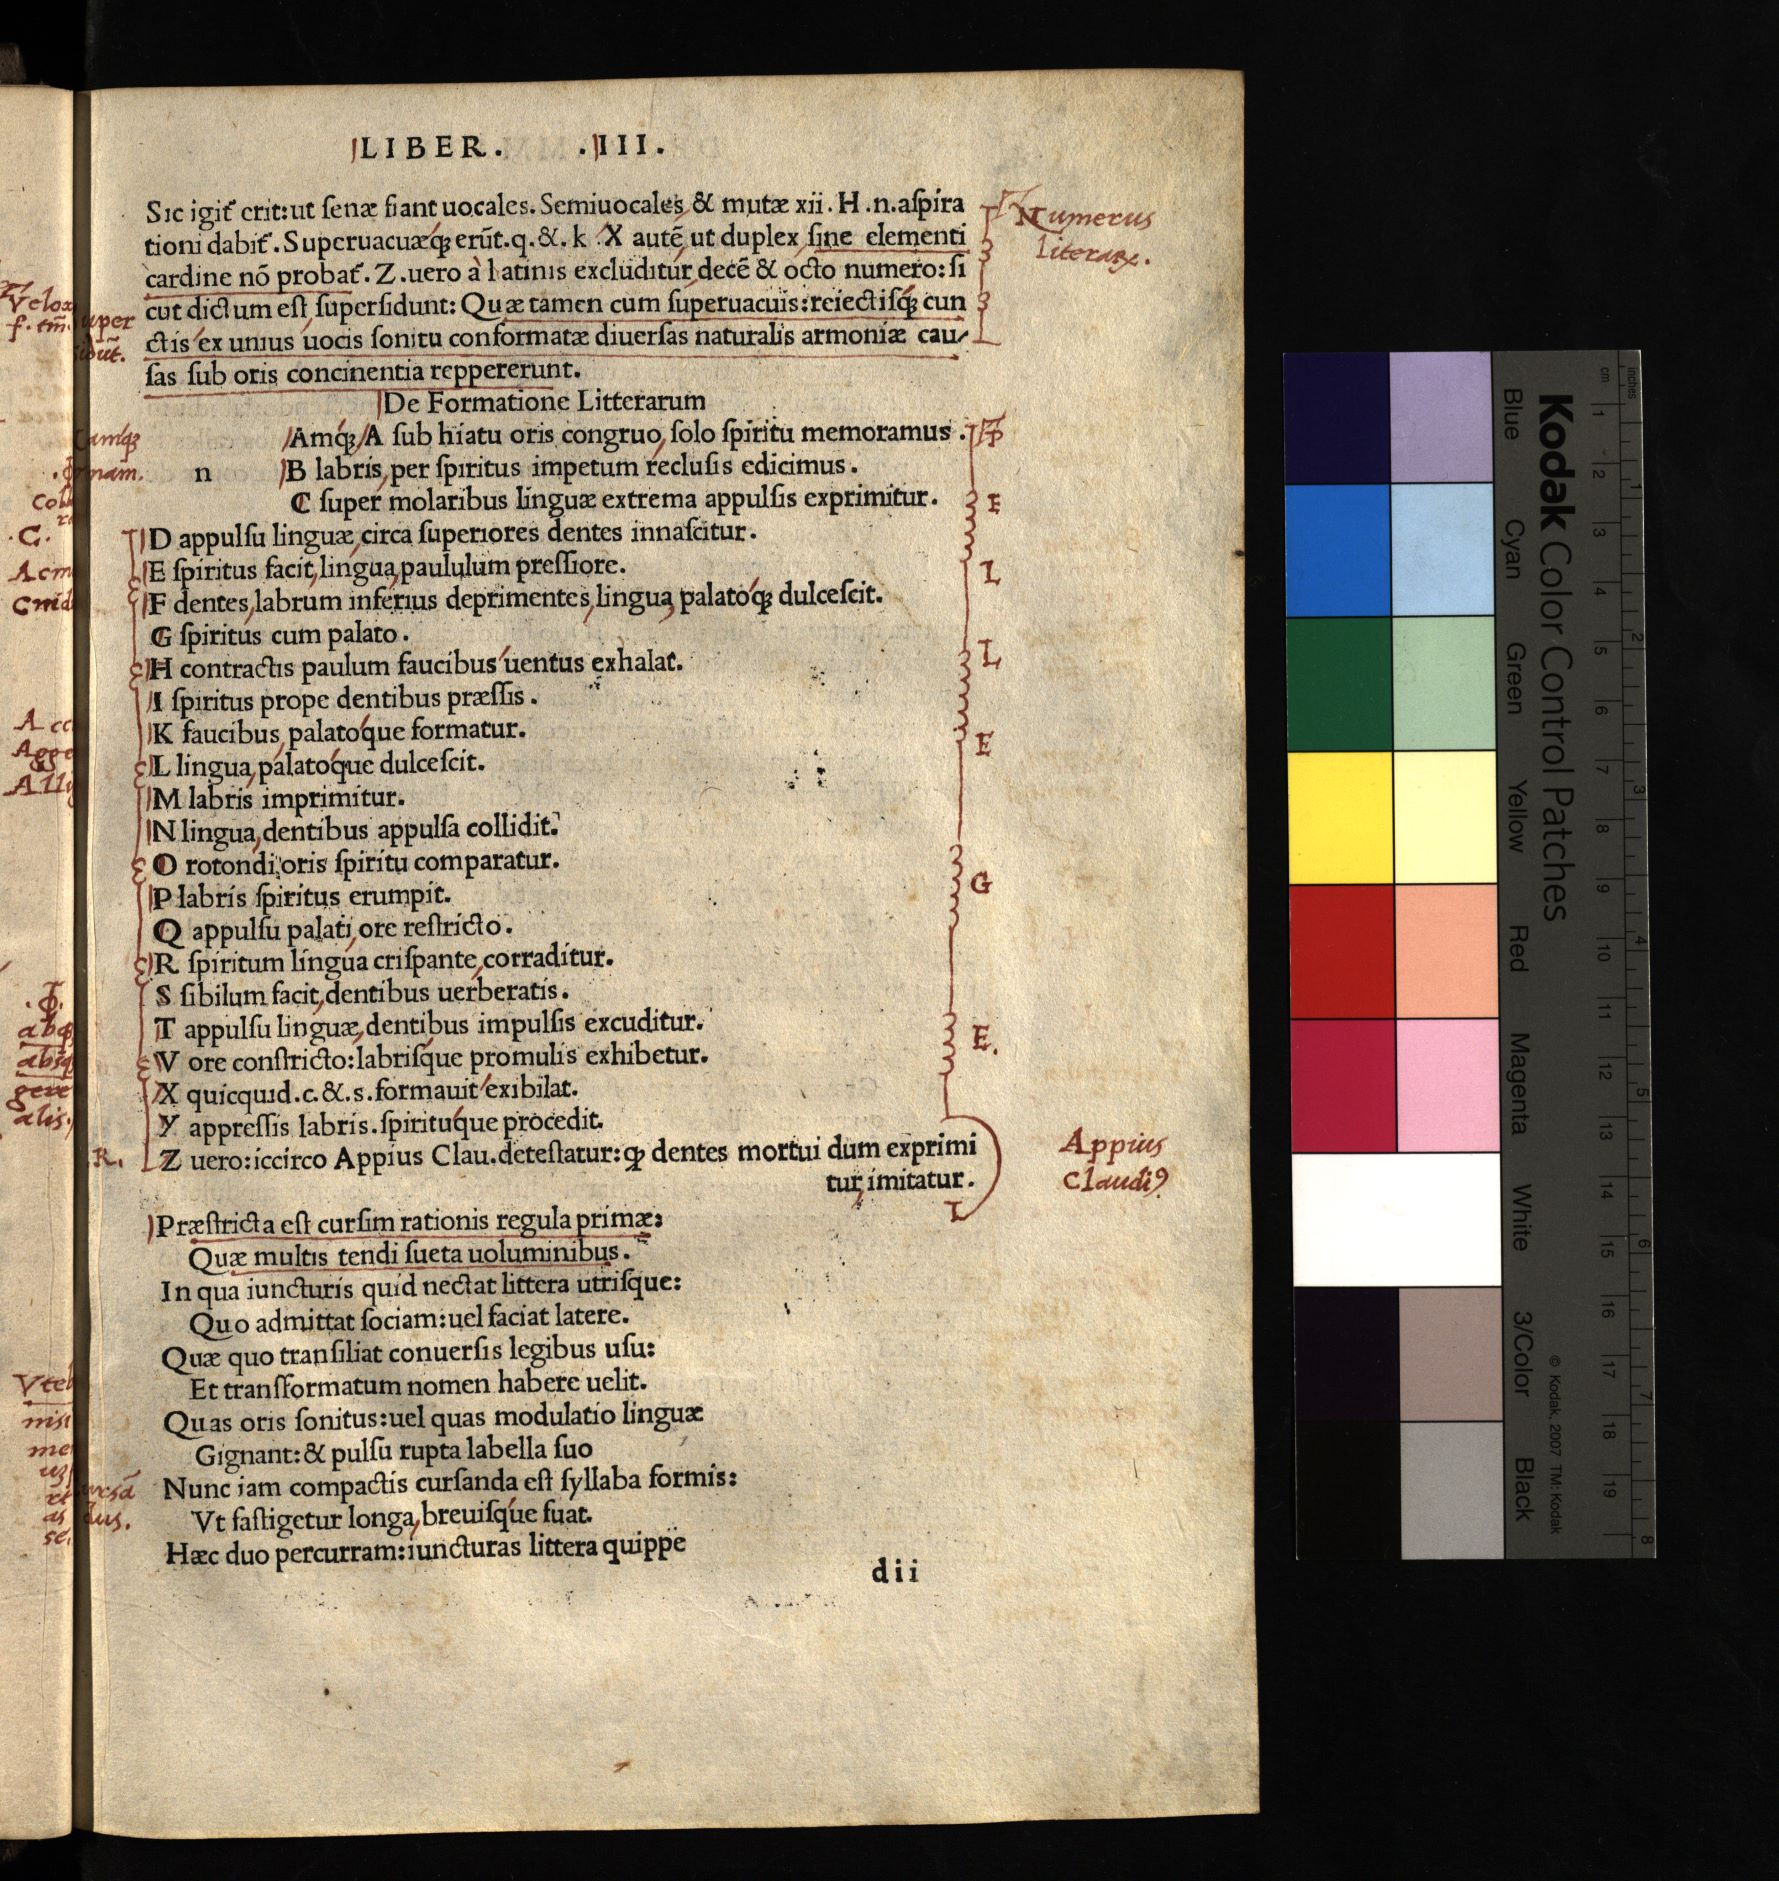 LIBER. .III.
Sic igit̃ erit:ut ſenæ fiant uocales. Semiuocales & mutæ xii. H .n.aſpira
tioni dabit̃. Superuacuæq; erũt.q.&.k X autẽ ut duplex ſine elementi
cardine nõ probat̃. Z.uero à latinis excluditur decẽ & octo numero:ſi
cut dictum eſt ſuperſidunt: Quæ tamen cum ſuperuacuis:reiectiſq; cun
ctis ex unius uocis ſonitu conformatæ diuerſas naturalis armoniæ cau/
ſas ſub oris concinentia reppererunt.
Numerus
De Formatione Litterarum
Amq; A ſub hiatu oris congruo, ſolo ſpiritu memoramus .
n B labris, per ſpiritus impetum recluſis edicimus .
C ſuper molaribus linguæ extrema appulſis exprimitur .
D appulſu linguæ, circa ſuperiores dentes innaſcitur .
E ſpiritus facit, lingua, paululum preſſiore.
F dentes, labrum inferius deprimentes, lingua, palatoq; dulceſcit.
G ſpiritus cum palato .
H contractis paulum faucibus uentus exhalat.
I ſpiritus prope dentibus præſſis .
K faucibus, palatoque formatur.
L lingua, palatoque dulceſcit.
M labris imprimitur.
N lingua, dentibus appulſa collidit.
O rotondi oris ſpiritu comparatur.
P labris ſpiritus erumpit.
Q appulſu palati, ore reſtricto .
R ſpiritum lingua criſpante, corraditur.
S ſibilum facit, dentibus uerberatis .
T appulſu linguæ, dentibus impulſis excuditur.
V ore conſtricto:labriſque promulis exhibetur.
X quicquid.c.&.s.formauit exibilat.
Y appreſſis labris.ſpirituque procedit.
Z uero:iccirco Appius Clau.deteſtatur:ꝙ dentes mortui dum exprimi
tur, imitatur .
Appius
Claudiꝰ
Præſtricta eſt curſim rationis regula primæ:
Quæ multis tendi ſueta uoluminibus .
In qua iuncturis quid nectat littera utriſque:
Quo admittat ſociam:uel faciat latere.
Quæ quo tranſiliat conuerſis legibus uſu:
Et tranſformatum nomen habere uelit.
Quas oris ſonitus:uel quas modulatio linguæ
Gignant:& pulſu rupta labella ſuo
Nunc iam compactis curſanda eſt ſyllaba formis:
Vt faſtigetur longa, breuiſque fuat.
Hæc duo percurram:iuncturas littera quippe
dii
Kodak Color Control Patches
Blue Cyan Green Yellow Red Magenta White 3/Color Black
© Kodak, 2007 TM: Kodak
cm 1 2 3 4 5 6 7 8 9 10 11 12 13 14 15 16 17 18 19
inches 1 2 3 4 5 6 7 8